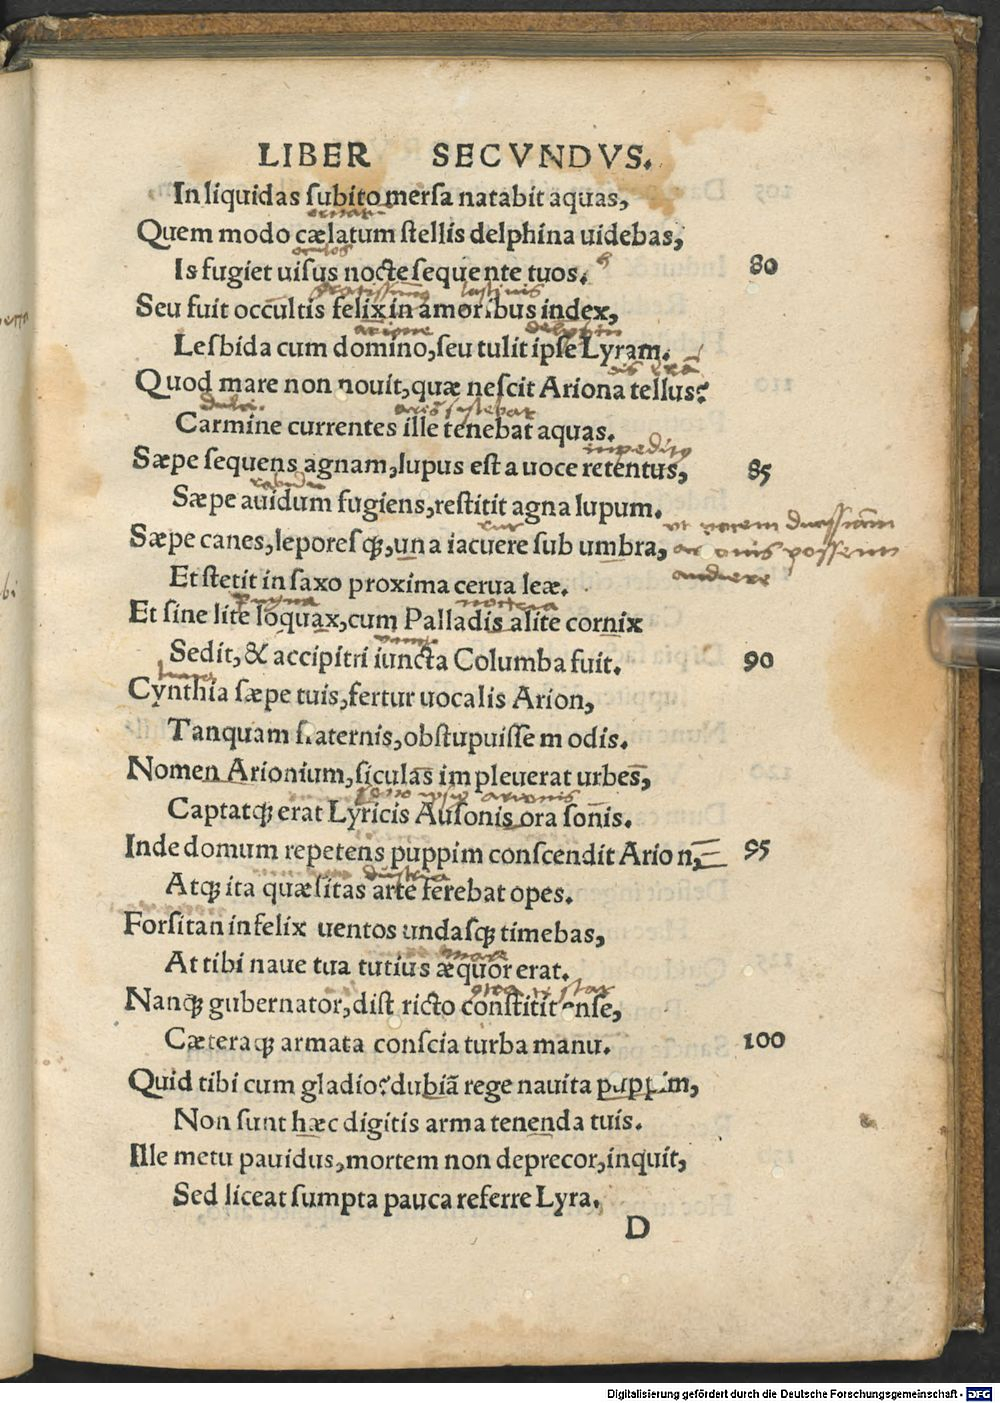 LIBER SECVNDVS.
In liquidas ſubito merſa natabit aquas,
Quem modo cælatum ſtellis delphina uidebas,
oculos
Is fugiet uiſus nocte ſequente tuos.
80
Seu fuit occultis felix in amoribus index,
arione delphin
Lesbida cum domino, ſeu tulit ipſe Lyram.
Quod mare non nouit, quæ neſcit Ariona tellus?
Carmine currentes ille tenebat aquas.
impedito
Sæpe ſequens agnam, lupus eſt a uoce retentus,
85
Sæpe auidum fugiens, reſtitit agna lupum.
Sæpe canes, leporeſq; una iacuere ſub umbra,
possent
audiere
Et ſtetit in ſaxo proxima cerua leæ.
pugna noctua
Et ſine lite loquax, cum Palladis alite cornix
Sedit, & accipitri iuncta Columba fuit.
90
luna
Cynthia ſæpe tuis, fertur uocalis Arion,
Tanquam fraternis, obſtupuiſſe modis.
Nomen Arionium, ſiculas impleuerat urbes,
sono arionis
Captatq; erat Lyricis Auſonis ora ſonis.
Inde domum repetens puppim conſcendit Arion,
95
Atq; ita quæſitas arte ferebat opes.
Forſitan infelix uentos undaſq; timebas,
mare
At tibi naue tua tutius æquor erat.
Nanq; gubernator, diſtricto conſtitit enſe,
Cæteraq; armata conſcia turba manu.
100
Quid tibi cum gladio? dubiā rege nauita puppim,
Non ſunt hæc digitis arma tenenda tuis.
Ille metu pauidus, mortem non deprecor, inquit,
Sed liceat ſumpta pauca referre Lyra.
D
Digitalisierung gefördert durch die Deutsche Forschungsgemeinschaft - DFG